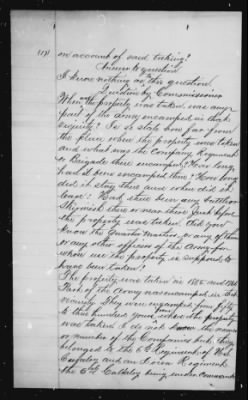 (17) on account of said taking?
Answer to question
I know nothing as to this question
Question by Commissioner
When the property was taken was any
part of the Army encamped in that
vicinity? If so state how far from
the place where the property was taken
and what was the Company Regiment
or Brigade there encamped? How long
had it been encamped there? How long
did it stay there and when did it
leave? Had there been any battle or
Skirmish there or near there just before
the property was taken? Did you
know the Quarter Master, or any of them
or any other officers of the Army
the property is supposed to
have been taken?
The property was taken in 1863 and 1864
Part of the Army was encamped in that
vicinity They were encamped from fifty
to three hundred yards from where the property
was taken I do not know the names
or number of the Companies but they
belonged to the 6th Regiment of
Cavalry and an Iowa Regiment
the 6th Cavalry being under Command